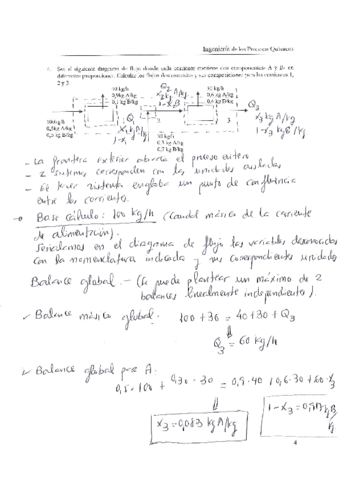 Ingeniería de los Procesos Químicos
Sea el siguiente diagrama de flujo donde cada corriente contiene dos componentes A y B, en
diferentes proporciones. Calcular los flujos desconocidos y sus composiciones para las corrientes 1,
2 y 3.
40 kg/h
0,9 kg A/kg
0,1 kg B/kg
Q2
x2 kg A/kg
1-x2 B
30 kg/h
0,6 kg A/kg
0,4 kg B/kg
Q3
x3 kg A/kg
1-x3 kg B/kg
100 kg/h
0,5 kg A/kg
0,5 kg B/kg
1
2
3
Q1
x1 kg A/kg
1-x1
30 kg/h
0,3 kg A/kg
0,7 kg B/kg
- La frontera exterior abarca el proceso entero
- 2 sistemas corresponden con las unidades aisladas
- El tercer sistema engloba un punto de confluencia
entre las corrientes.
Base cálculo: 100 kg/h (caudal másico de la corriente
de alimentación).
Señalamos en el diagrama de flujo las variables desconocidas
con la nomenclatura indicada y sus correspondientes unidades
Balance global.- (Se puede plantear un máximo de 2
balances linealmente independientes).
Balance másico global: 100 + 30 = 40 + 30 + Q3
Q3 = 60 kg/h
Balance global para A:
0,5·100 + 0,30·30 = 0,9·40 + 0,6·30 + 60·x3
x3 = 0,083 kg A/kg
1-x3 = 0,917 kg B/kg
4